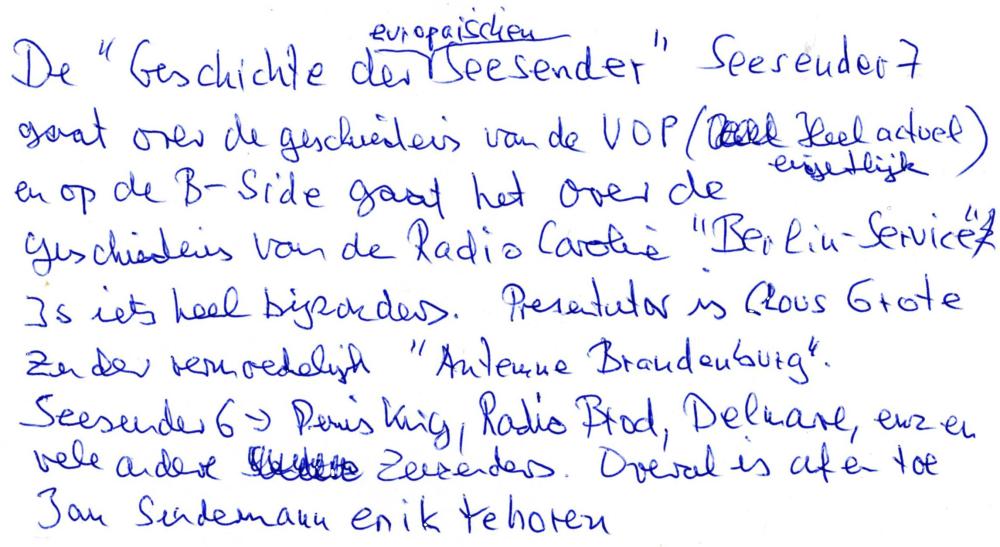 europaischen
De "Geschichte der Seesender" Seesender 7
gaat over de geschiedenis van de VOP ( Heel actuel)
eigentlijk
en op de B-Side gaat het over de
geschiedenis van de Radio Caroline "Berlin-Service"
Is iets heel bijzonders. Presentator is Claus Grote
Zender vermoedelijk "Antenne Brandenburg".
Seesender 6 → Denis King, Radio Brod, Delmare, enz en
vele andere Zeezenders. Overal is af en toe
Jan Sundermann en ik te horen